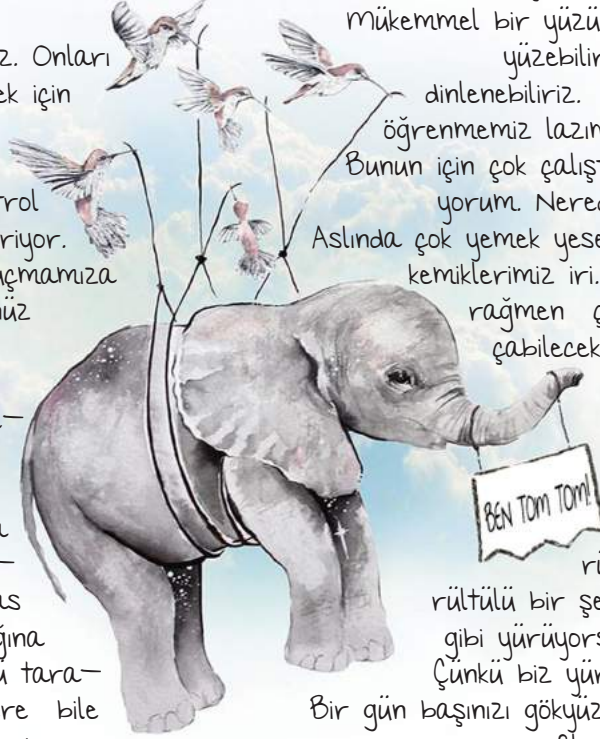 z. Onları
ek için
rol
riyor.
uçmamıza
üz
a
as
ğına
ü tara-
re bile
Mükemmel bir yüzü
yüzebilir
dinlenebiliriz.
öğrenmemiz lazım
Bunun için çok çalışt
yorum. Nered
Aslında çok yemek yese
kemiklerimiz iri.
rağmen ç
çabilecek
BEN TOM TOM!
rü
rültülü bir şe
gibi yürüyors
Çünkü biz yür
Bir gün başınızı gökyüz